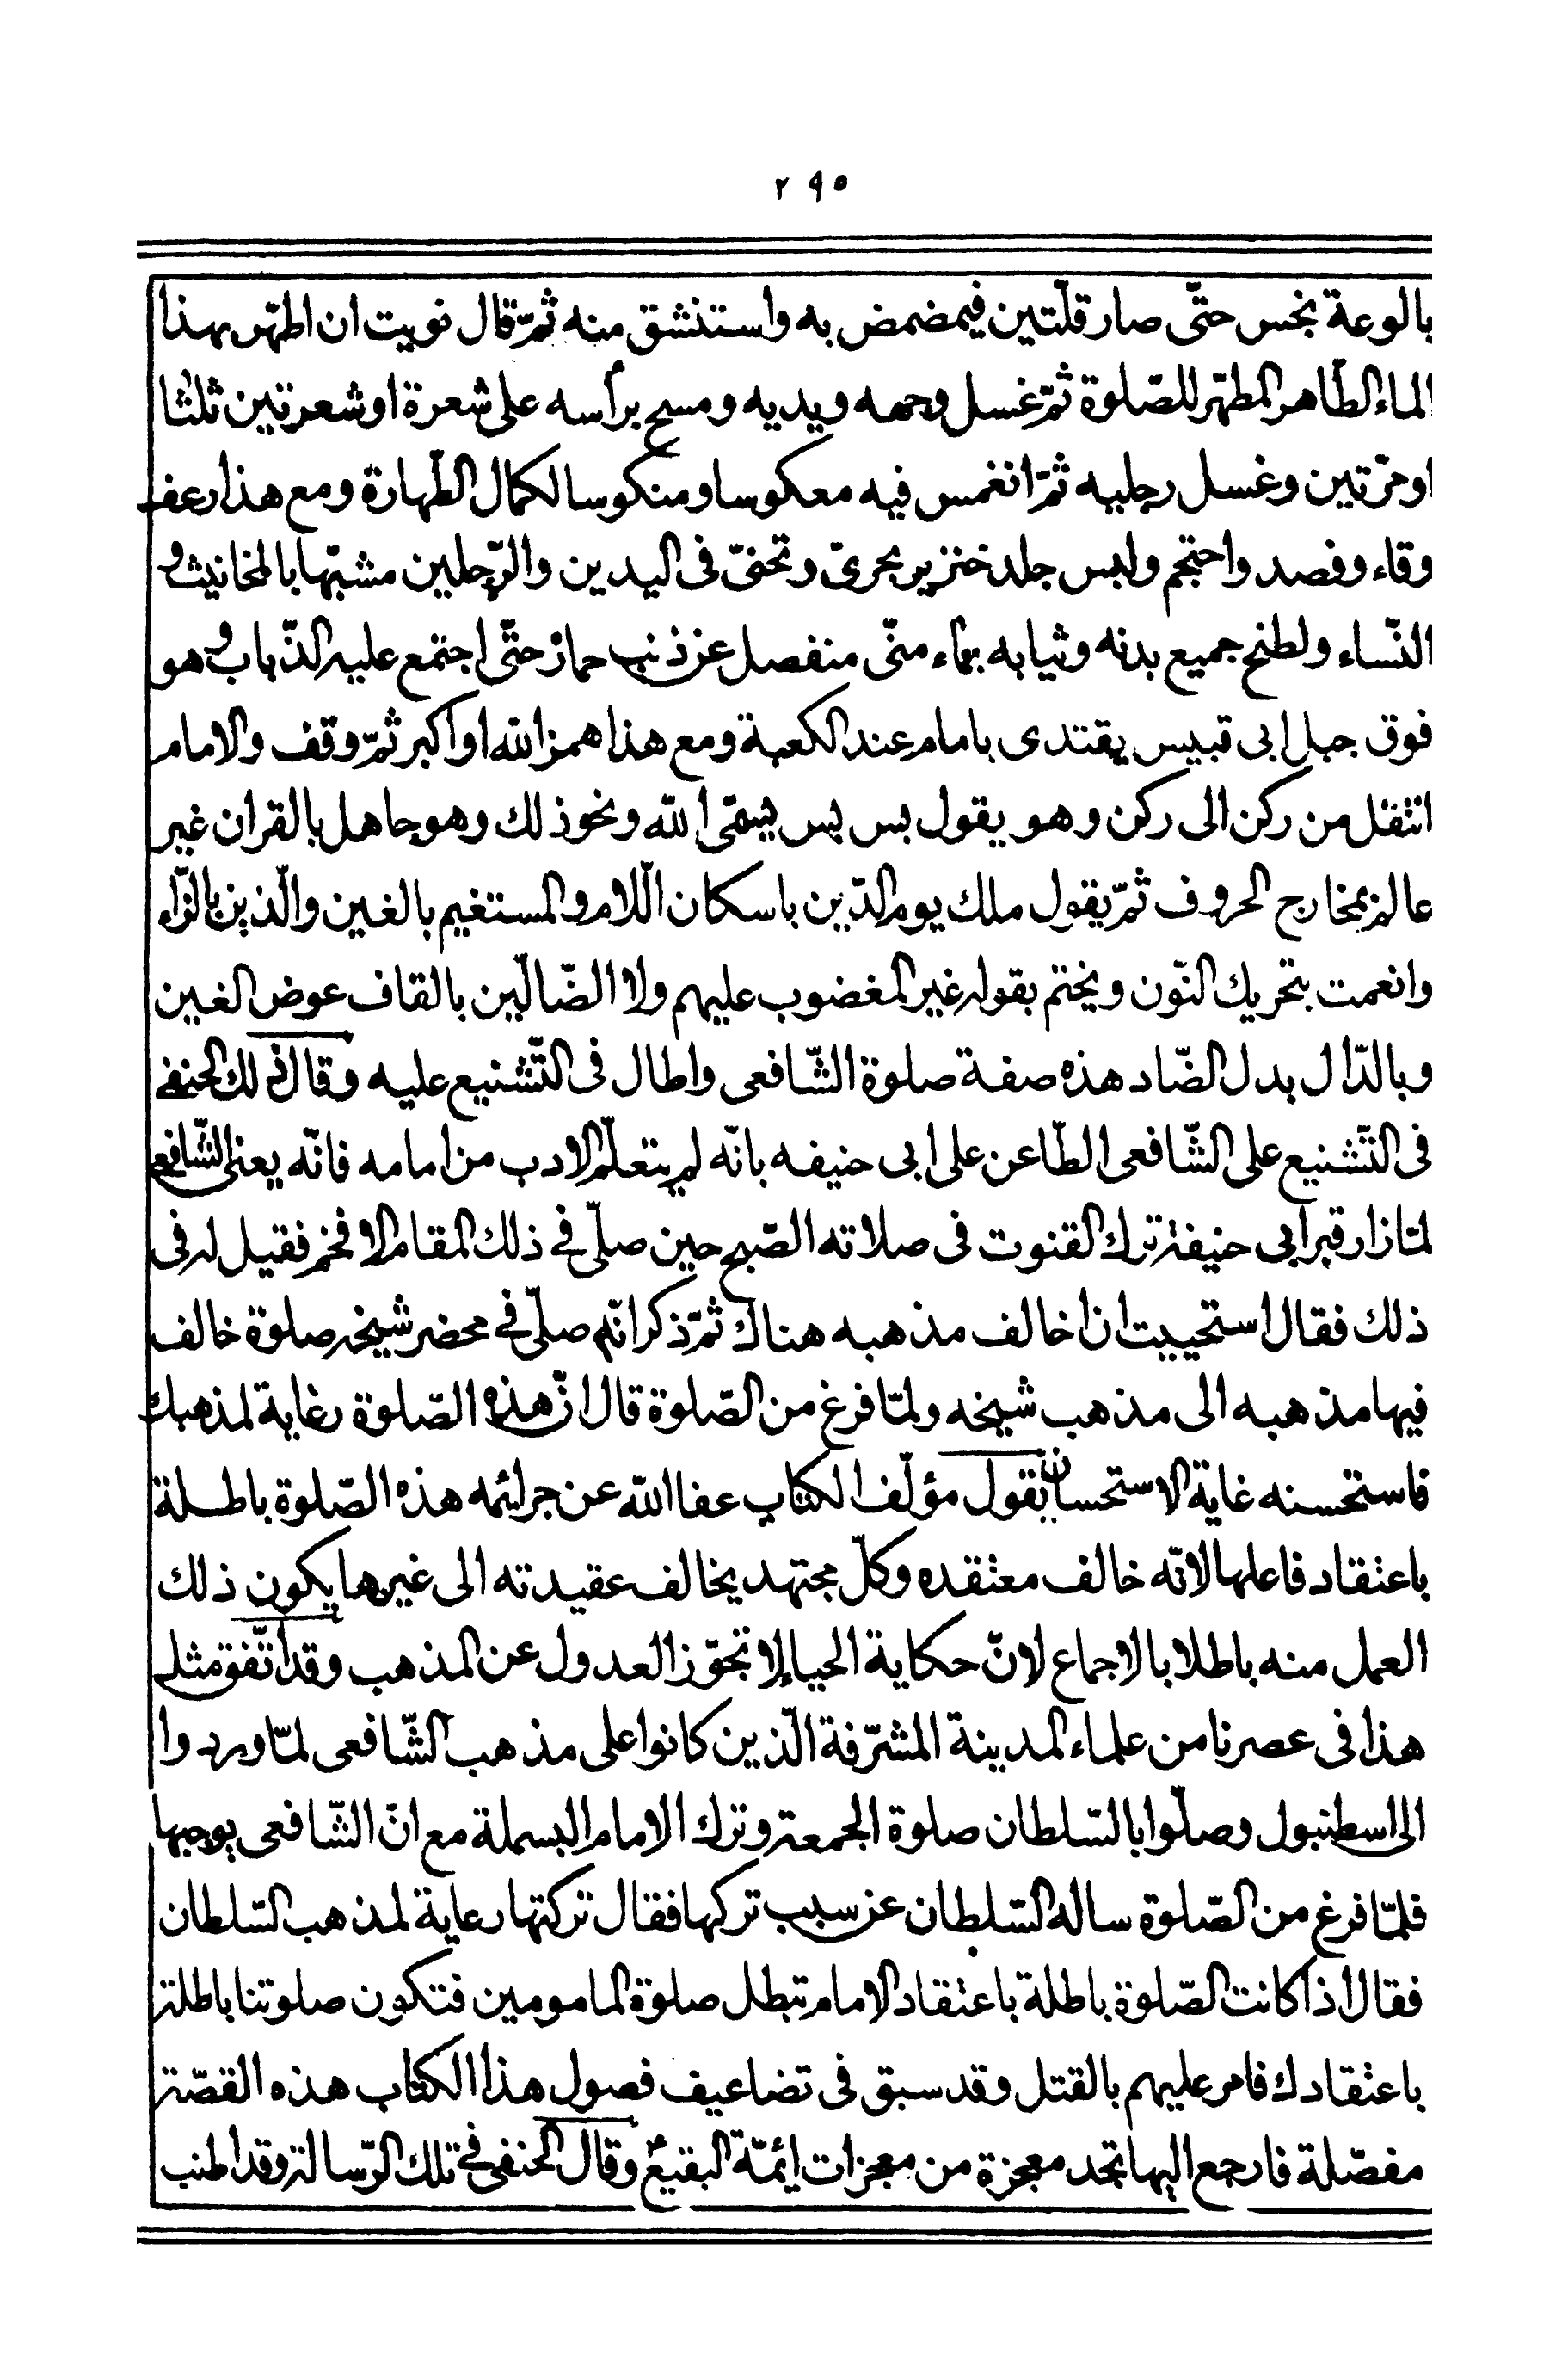 ٢٩٥
بالوعة نجس حتّى صار قلّتين فيمضمض به واستنشق منه ثمّ قال نويت ان اطهّر بهذا
الماء الطّاهر المطهّر للصّلوة ثمّ غسل وجهه ويديه ومسح برأسه على شعرة او شعرتين ثلثا
او مرّتين وغسل رجليه ثمّ انغمس فيه معكوسا ومنكوسا لكمال الطّهارة ومع هذا رعف
وقاء وفصد واحتجم ولبس جلد خنزير بحرىّ وتحنّى فى اليدين والرّجلين مشبّها بالمخانيث و
النّساء ولطخ جميع بدنه وثيابه بماء منّى منفصل عن ذنب حمار حتّى اجتمع عليه الذّباب وهو
فوق جبل ابى قبيس يقتدى بامام عند الكعبة ومع هذا همز الله او اكبر ثمّ وقف والامام
انتقل من ركن الى ركن وهو يقول بس بس يسمّى الله ونحو ذلك وهو جاهل بالقران غير
عالم بمخارج الحروف ثمّ يقول ملك يوم الدّين باسكان اللّام والمستغيم بالغين والّذين بالزّاء
وانعمت بتحريك النّون ويختم بقوله غير المغضوب عليهم ولا الضّالّين بالقاف عوض الغين
وبالدّال بدل الضّاد هذه صفة صلوة الشّافعى واطال فى التّشنيع عليه وقال ذلك الحنفى
فى التّشنيع على الشّافعى الطّاعن على ابى حنيفه بانّه لم يتعلّم الادب من امامه فانّه يعنى الشّافعى
لمّا زار قبر ابى حنيفة ترك القنوت فى صلاته الصّبح حين صلّى فى ذلك المقام الافخم فقيل له فى
ذلك فقال استحييت ان اخالف مذهبه هناك ثمّ ذكر انّه صلّى فى محضر شيخه صلوة خالف
فيها مذهبه الى مذهب شيخه ولمّا فرغ من الصّلوة قال انّ هذه الصّلوة رعاية لمذهبك
فاستحسنه غاية الاستحسان يقول مؤلّف الكتاب عفا الله عن جرائمه هذه الصّلوة باطلة
باعتقاد فاعلها لانّه خالف معتقده وكلّ مجتهد يخالف عقيدته الى غيرها يكون ذلك
العمل منه باطلا بالاجماع لانّ حكاية الحياء لا تجوّز العدول عن المذهب وقد اتّفق مثل
هذا فى عصرنا من علماء المدينة المشرّفة الّذين كانوا على مذهب الشّافعى لمّا وردوا
الى اسطنبول وصلّوا بالسّلطان صلوة الجمعة وترك الامام البسملة مع انّ الشّافعى يوجبها
فلمّا فرغ من الصّلوة ساله السّلطان عن سبب تركها فقال تركتها رعاية لمذهب السّلطان
فقال اذا كانت الصّلوة باطلة باعتقاد الامام تبطل صلوة المامومين فتكون صلوتنا باطلة
باعتقادك فامر عليهم بالقتل وقد سبق فى تضاعيف فصول هذا الكتاب هذه القصّة
مفصّلة فارجع اليها تجد معجزة من معجزات ائمّة البقيع ع وقال الحنفى فى تلك الرّسالة وقد اطنب